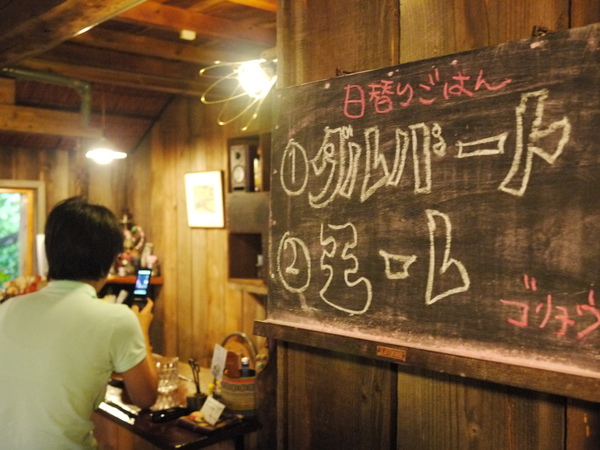 日替りごはん
①ダルバート
②モーレ
ゴリチウ